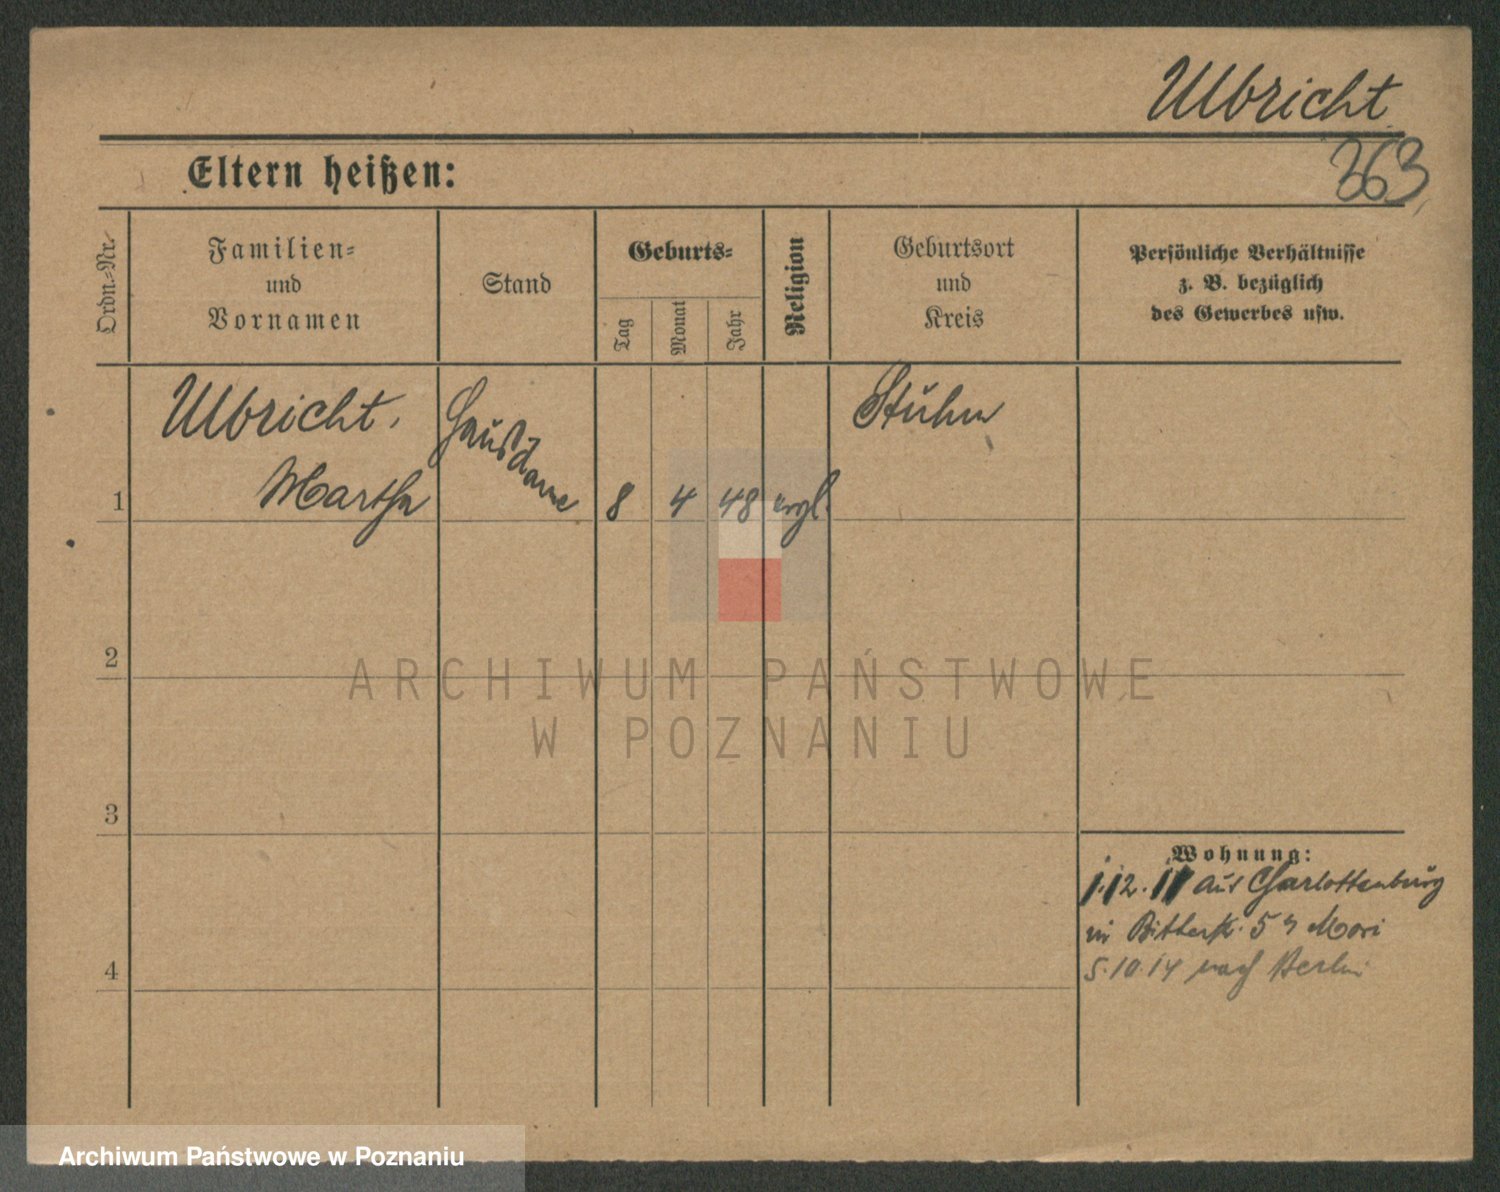 Ulbricht
363
Eltern heißen:
Ordn.-Nr.
Familien-
und
Vornamen
Stand
Geburts-
Tag
Monat
Jahr
Religion
Geburtsort
und
Kreis
Persönliche Verhältnisse
z. B. bezüglich
des Gewerbes usw.
Ulbricht,
Martha
Hausdame
8 4 48 evgl.
Stuhm
1
2
ARCHIWUM PAŃSTWOWE
W POZNANIU
3
4
Wohnung:
1.12.11 aus Charlottenburg
in Bitterstr.
5.10.14 nach Berlin
Archiwum Państwowe w Poznaniu